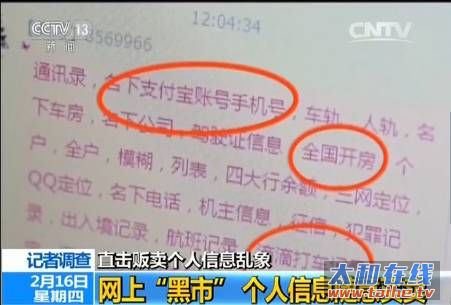 CCTV 13
新闻
12:04:34
CNTV
569966
通讯录，名下支付宝账号手机号，车轨，人轨，名
下车房，名下公司，驾驶证信息，全国开房 个
户，全户，模糊，列表，四大行余额，三网定位，
QQ定位，名下电话，机主信息，征信，犯罪记
录，出入境记录，航班记录，滴滴打车
记者调查
直击贩卖个人信息乱象
2月16日
星期四
网上“黑市” 个人信息
太和
www.taihe.tv